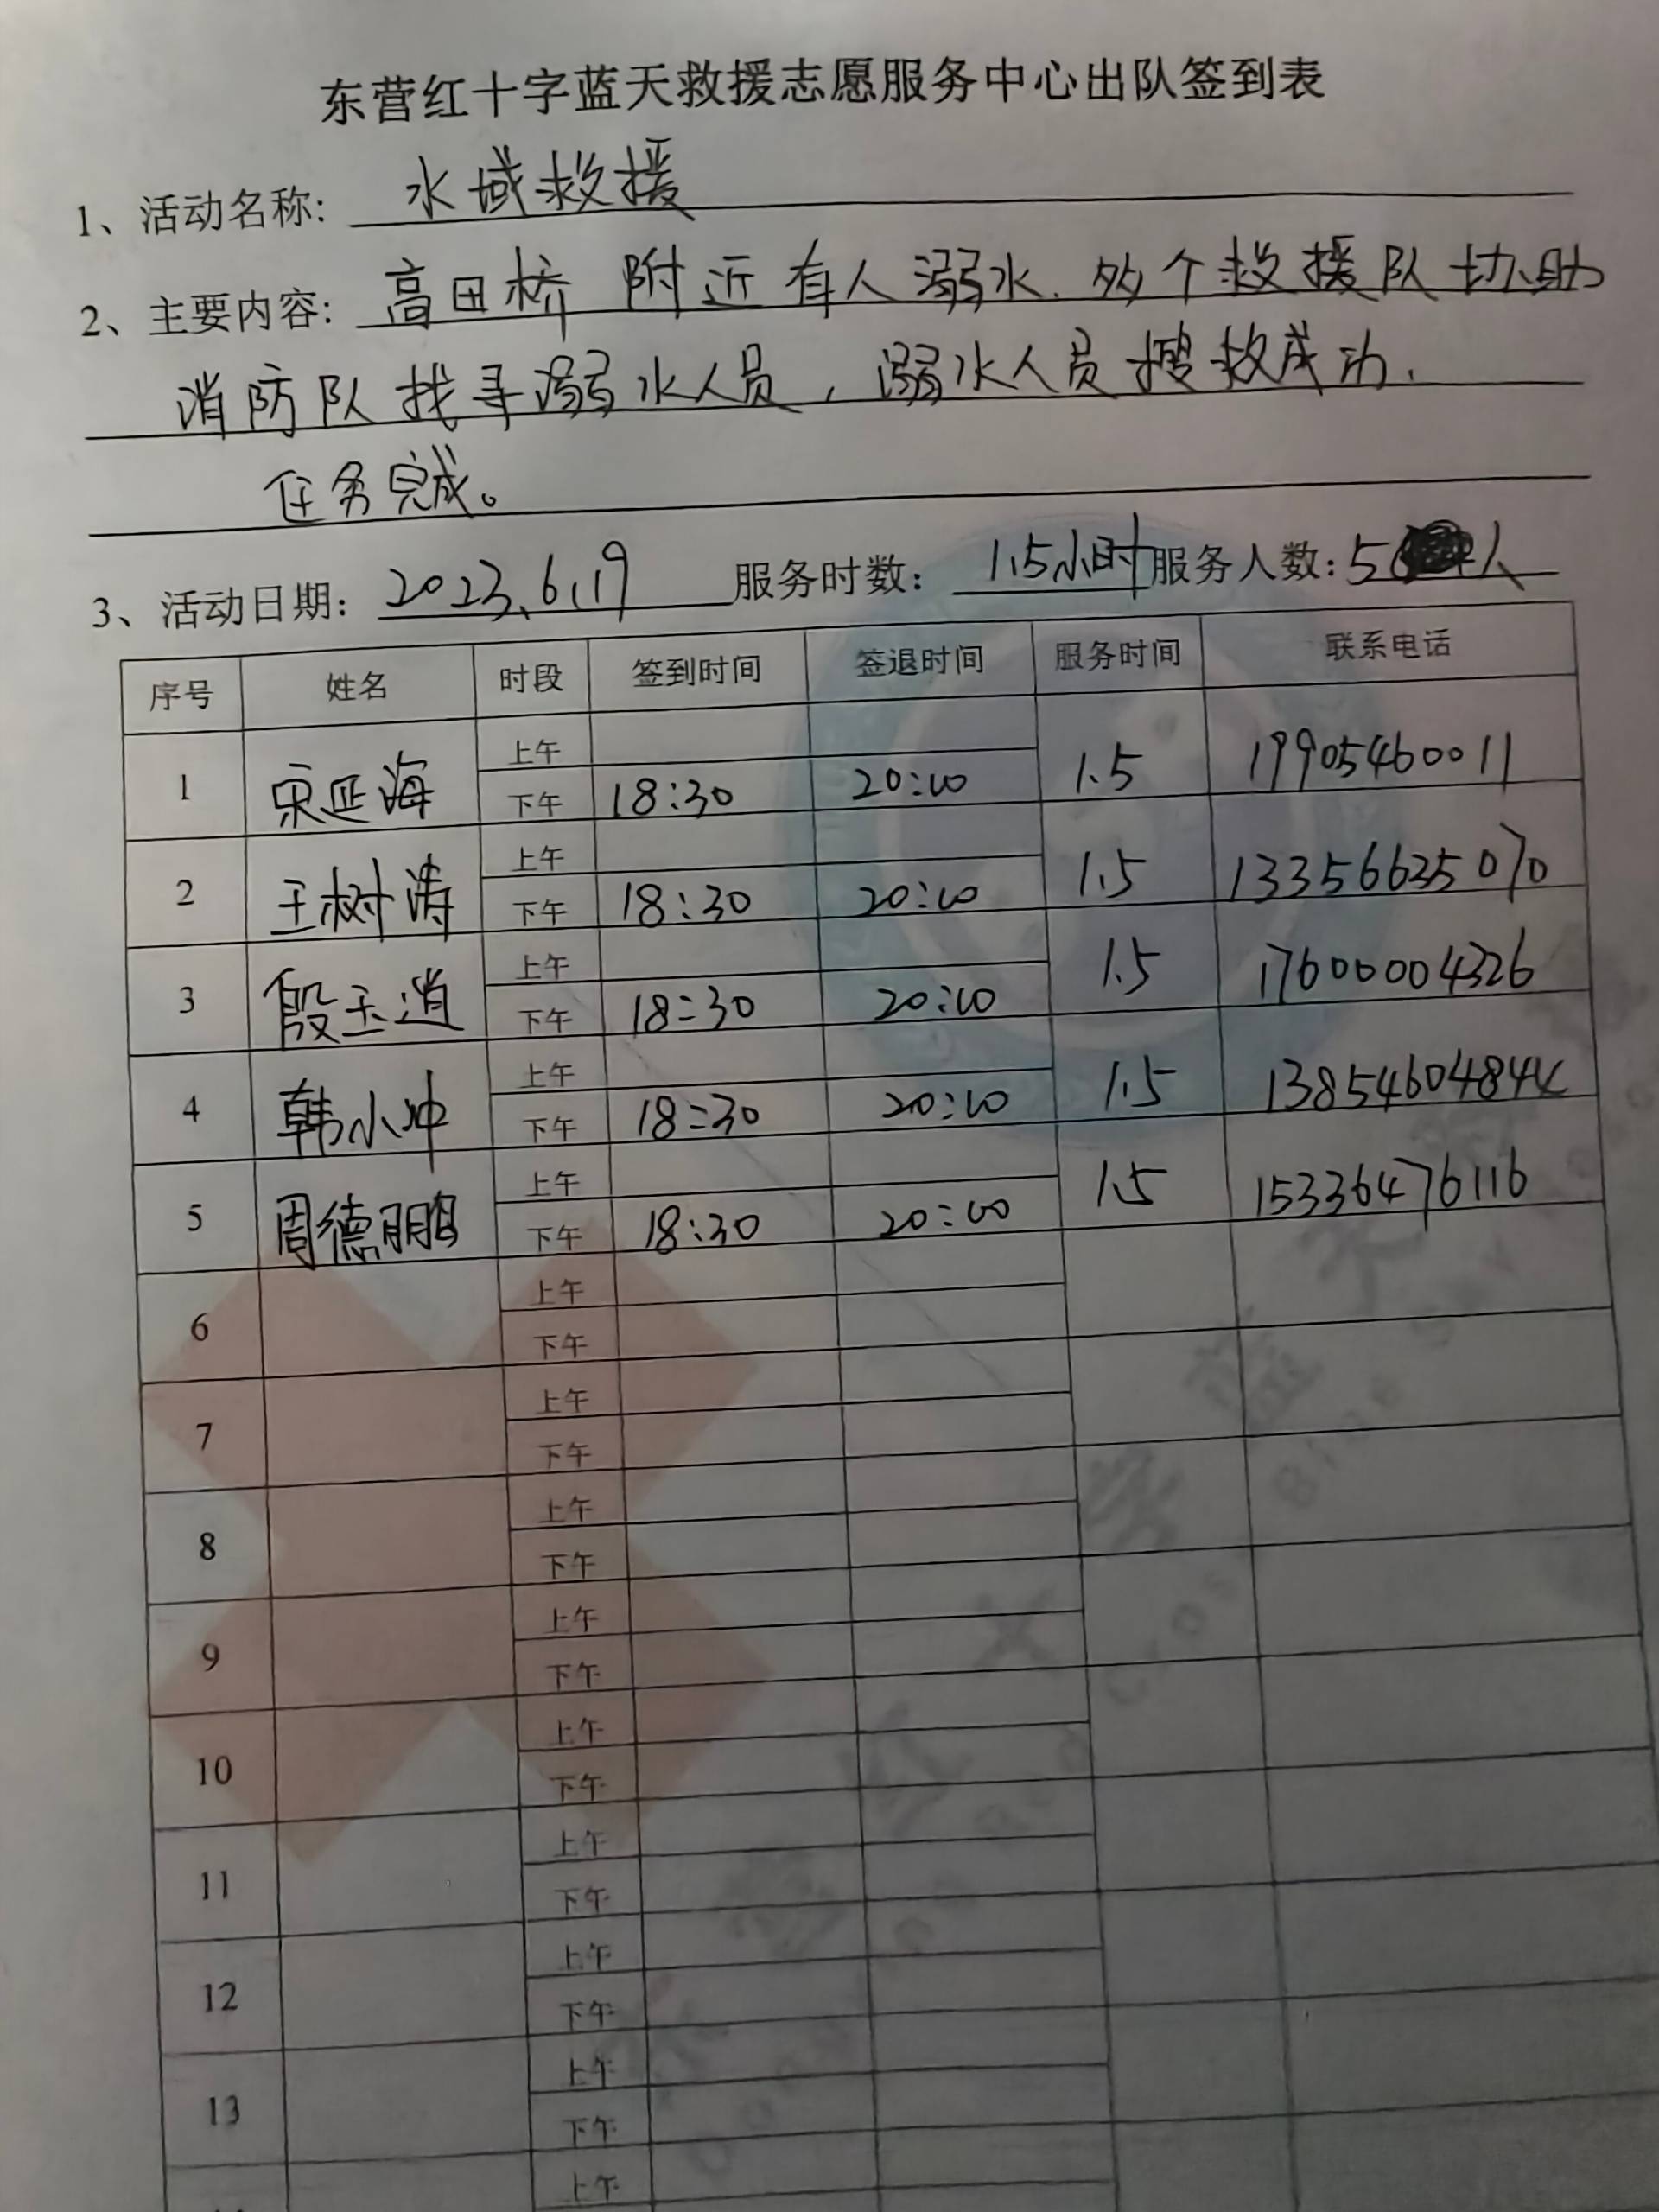 东营红十字蓝天救援志愿服务中心出队签到表
1、活动名称: 水域救援
2、主要内容: 高田桥 附近有人溺水.多个救援队协助
消防队找寻溺水人员,溺水人员搜救成功.
任务完成。
3、活动日期: 2023.6.19 服务时数: 1.5小时 服务人数: 5人
序号 姓名 时段 签到时间 签退时间 服务时间 联系电话
上午
1 宋延海 1.5 19905460011
下午 18:30 20:00
上午
2 王树涛 1.5 13356625070
下午 18:30 20:00
上午
3 殷玉逍 1.5 17600004326
下午 18:30 20:00
上午
4 韩小冲 1.5 13854604844
下午 18:30 20:00
上午
5 周德鹏 1.5 15336476116
下午 18:30 20:00
上午
6
下午
上午
7
下午
上午
8
下午
上午
9
下午
上午
10
下午
上午
11
下午
上午
12
下午
上午
13
下午
上午